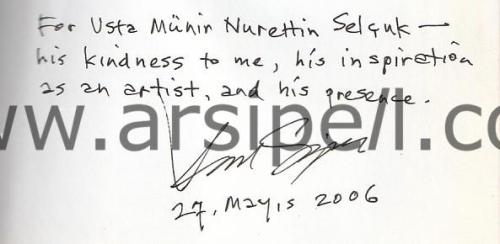 For Usta Münir Nurettin Selçuk —
his kindness to me, his inspiration
as an artist, and his presence.
ww.arsipe/l.co
27, Mayıs 2006